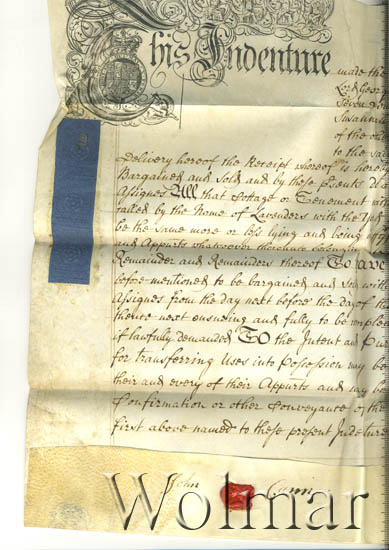 This Indenture made the
Lrd George
Seven
Susanna
of the o
to the sai
Delivery hereof the Receipt whereof is hereby
Bargained and Sold and by these Psents D
Assignes All that Cottage or Tenement with
called by the Name of Lavenders with the Yard
be the same more or less lying and being
and Appurts whatsoever thereunto belonging
Remainder and Remainders thereof To have
before mentioned to be bargained and sold with
Assignes from the day next before the day of th
thence next ensueing and fully to be comple
if lawfully demanded To the Intent and Pur
for transferring Uses into Possession may be
their and every of their Appurts and may be
Confirmation or other Conveyance of the
first above named to these present Indenture
John
Wolmar